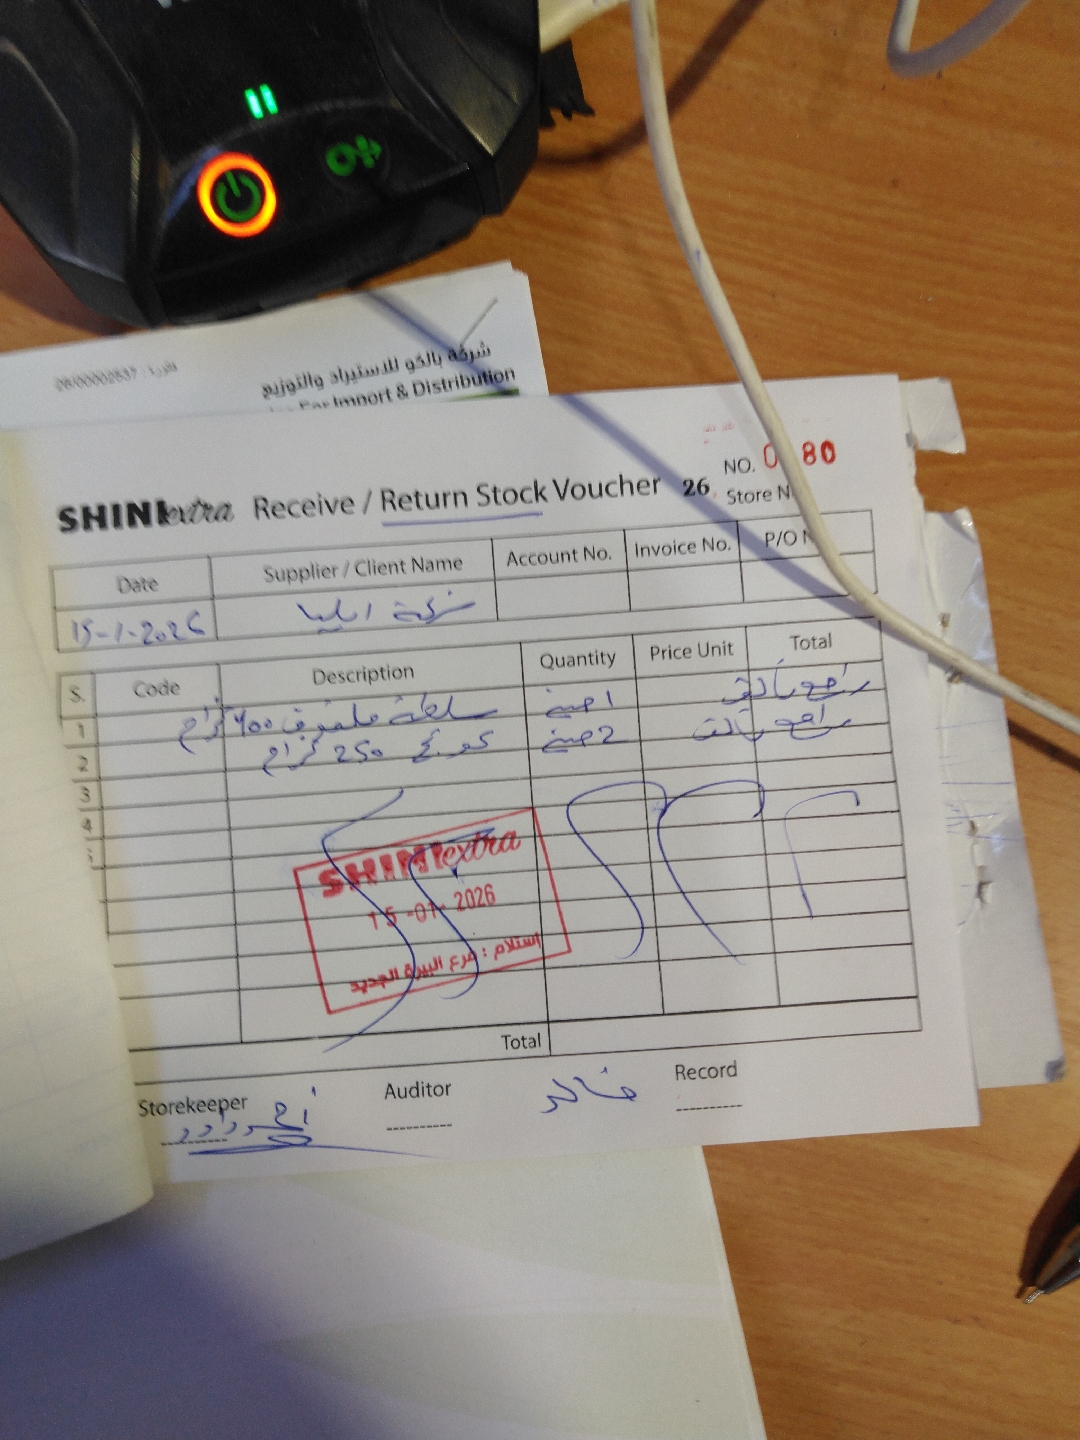 شركة بالكو للاستيراد والتوزيع
For Import & Distribution
SHINI extra Receive / Return Stock Voucher
NO. 80
26
Store N
Date Supplier / Client Name Account No. Invoice No. P/O N
15-1-2026 شركة
S. Code Description Quantity Price Unit Total
1 سلطة ملفوف 400 غرام 1 حبة راجع تالف
2 250 غرام 2 حبة راجع تالف
3
4
SHINI extra
15-01-2026
استلام : فرع البيرة الجديد
Total
Storekeeper Auditor Record
خالد